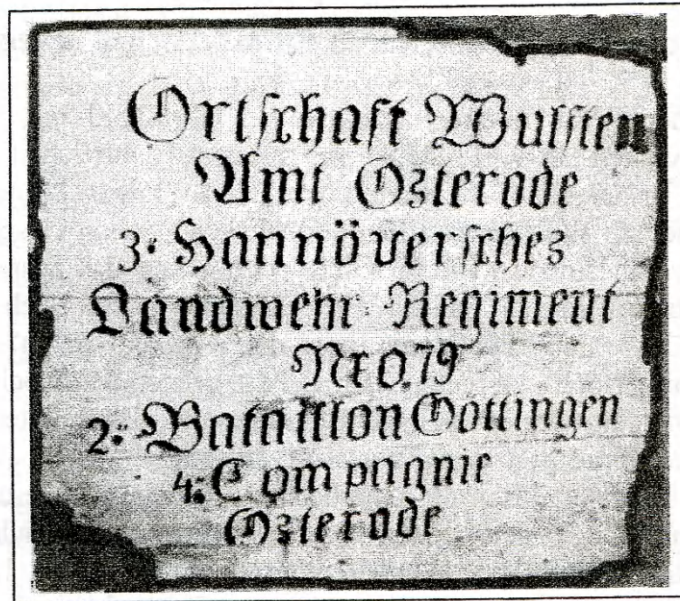 Ortschaft Wulften
Amt Osterode
3. Hannöversches
Landwehr Regiment
Nro. 79
2. Bataillon Göttingen
4. Compagnie
Osterode